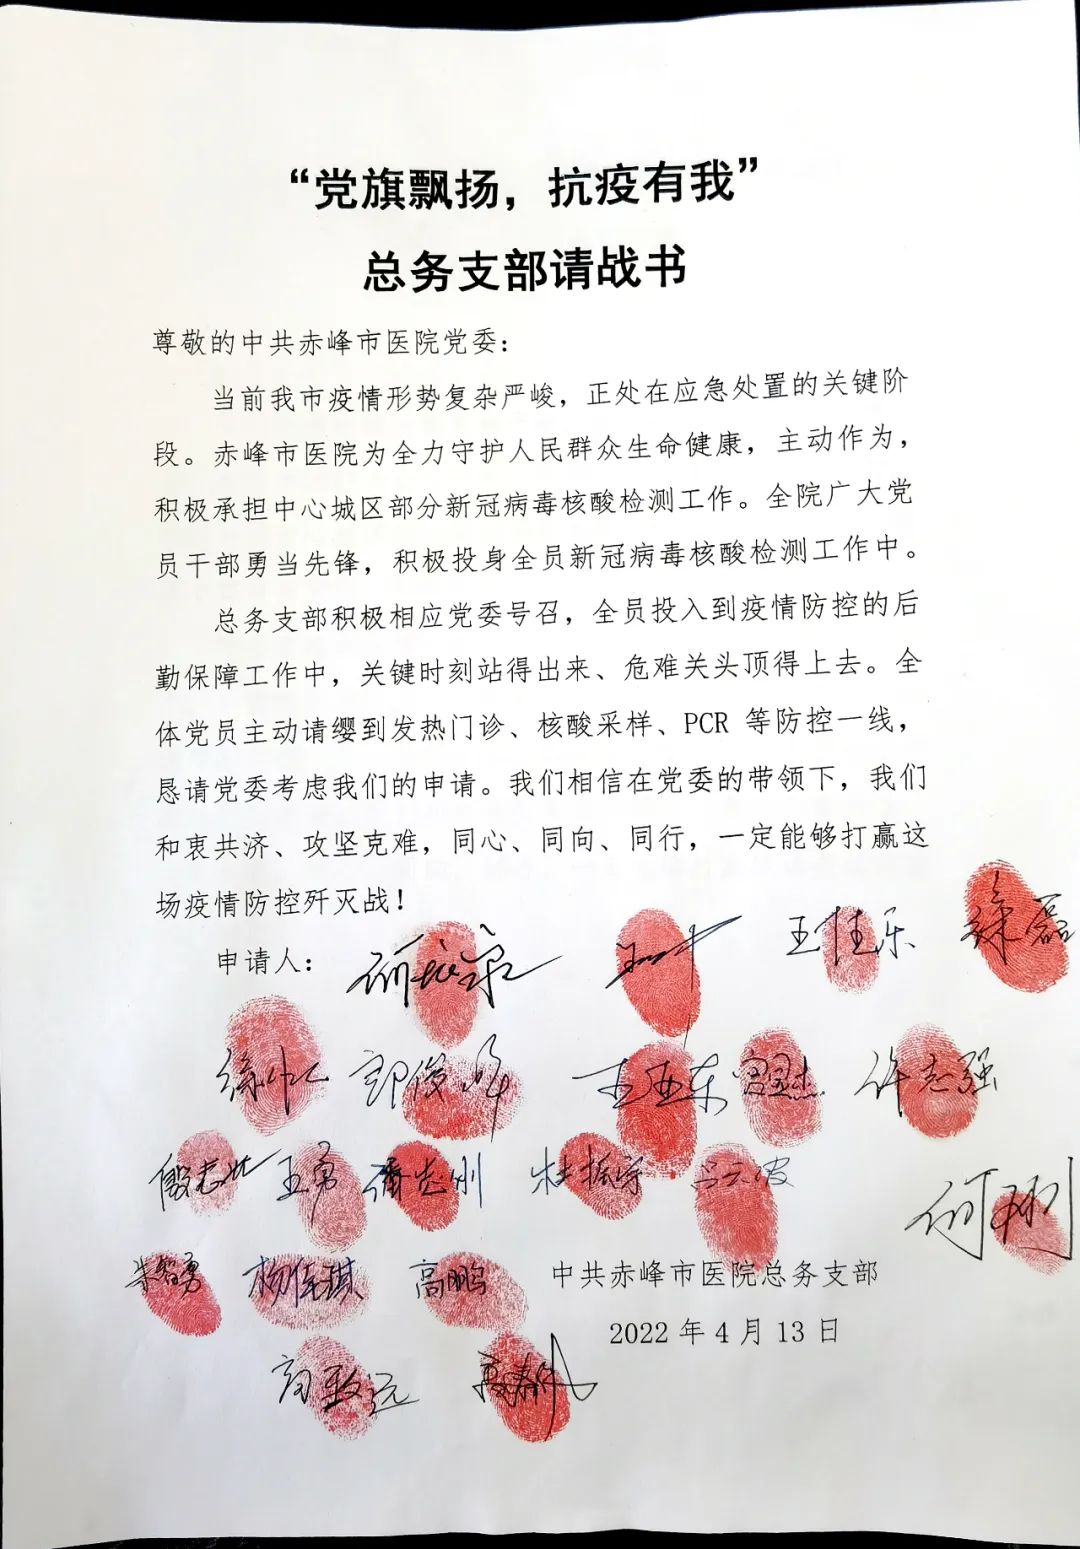 “党旗飘扬，抗疫有我”
总务支部请战书
尊敬的中共赤峰市医院党委：
当前我市疫情形势复杂严峻，正处在应急处置的关键阶
段。赤峰市医院为全力守护人民群众生命健康，主动作为，
积极承担中心城区部分新冠病毒核酸检测工作。全院广大党
员干部勇当先锋，积极投身全员新冠病毒核酸检测工作中。
总务支部积极相应党委号召，全员投入到疫情防控的后
勤保障工作中，关键时刻站得出来、危难关头顶得上去。全
体党员主动请缨到发热门诊、核酸采样、PCR 等防控一线，
恳请党委考虑我们的申请。我们相信在党委的带领下，我们
和衷共济、攻坚克难，同心、同向、同行，一定能够打赢这
场疫情防控歼灭战！
申请人： 王佳乐
郭俊峰 王亚东 许志强
王勇 潘志刚 杜振宇
朱智勇 杨佳琪 高鹏
中共赤峰市医院总务支部
2022 年 4 月 13 日